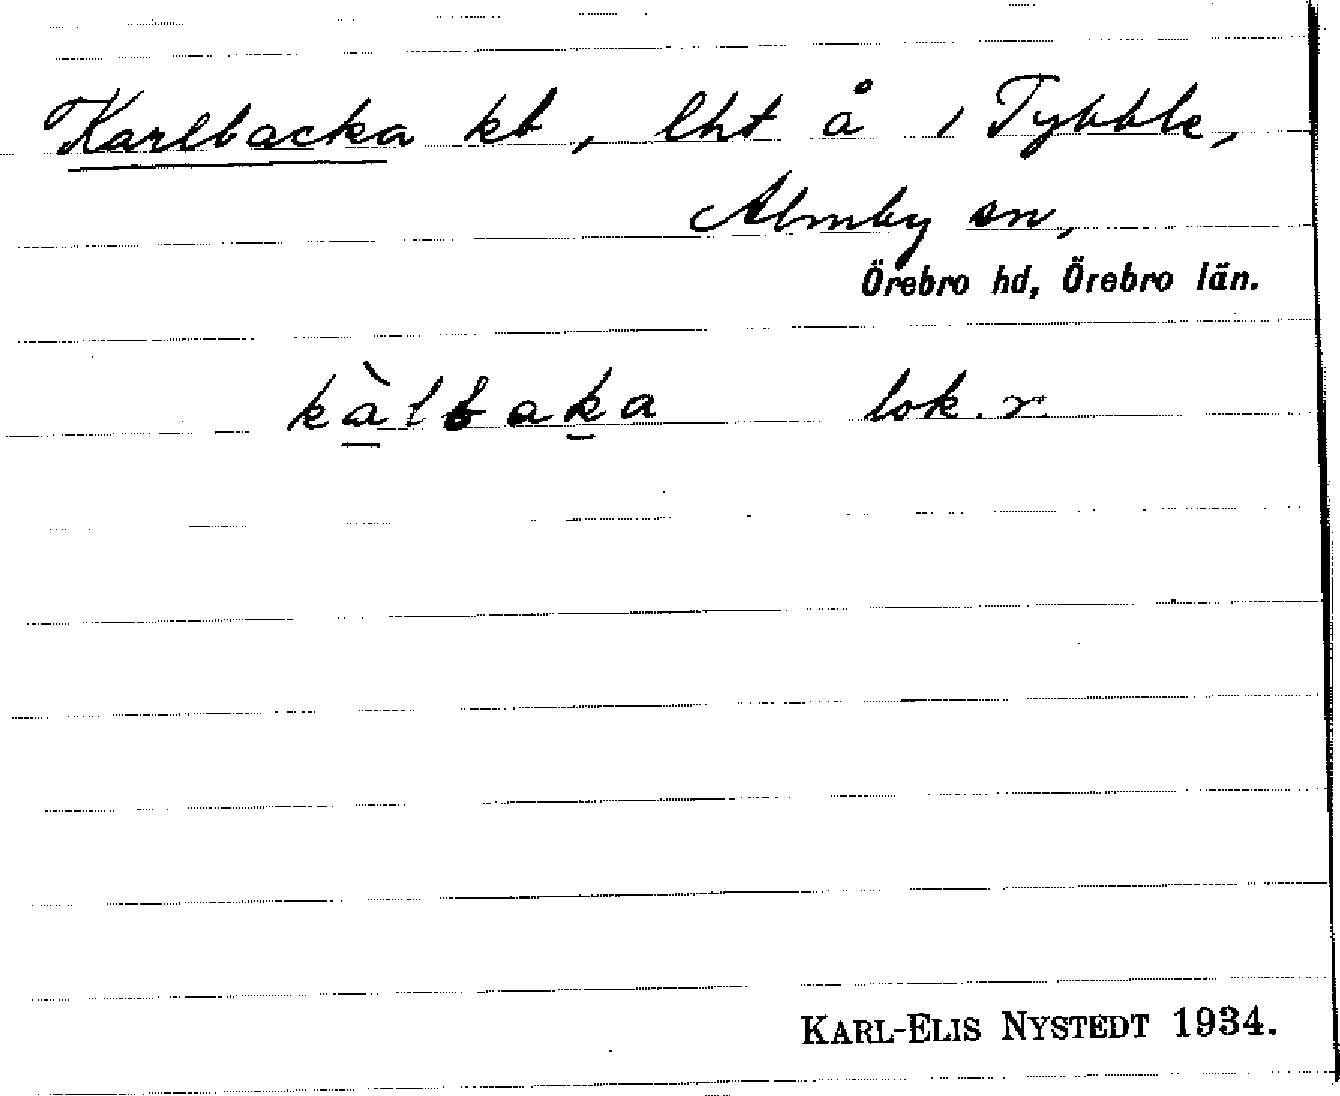 Karlbacka kb, lht å 1 Tybble,
Almby sn,
Örebro hd, Örebro län.
kàlbaka lok. r.
KARL-ELIS NYSTEDT 1934.